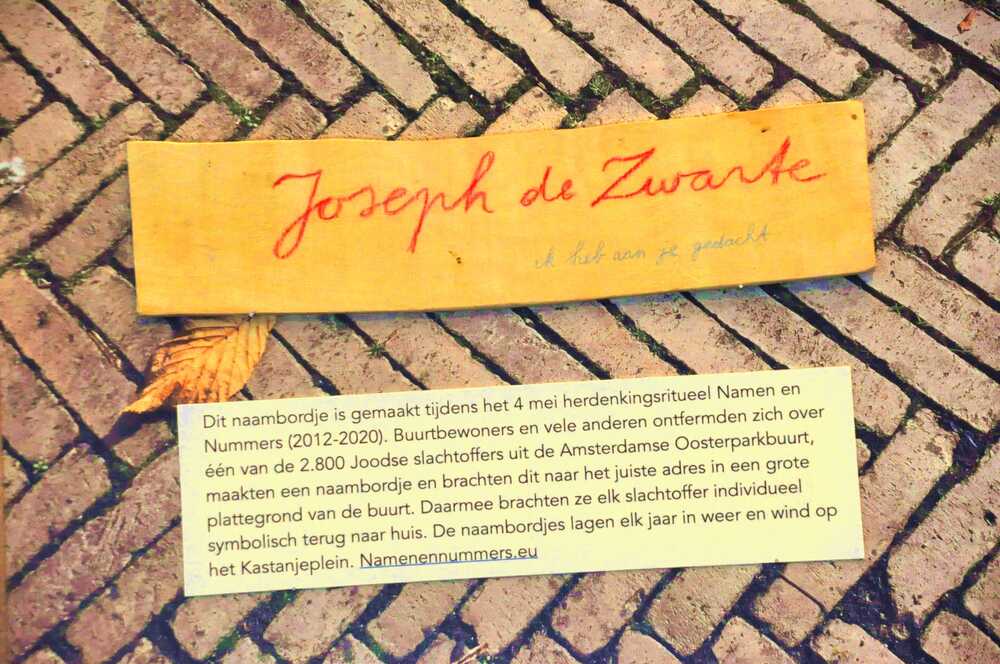 Joseph de Zwarte
ik heb aan je gedacht
Dit naambordje is gemaakt tijdens het 4 mei herdenkingsritueel Namen en
Nummers (2012-2020). Buurtbewoners en vele anderen ontfermden zich over
één van de 2.800 Joodse slachtoffers uit de Amsterdamse Oosterparkbuurt,
maakten een naambordje en brachten dit naar het juiste adres in een grote
plattegrond van de buurt. Daarmee brachten ze elk slachtoffer individueel
symbolisch terug naar huis. De naambordjes lagen elk jaar in weer en wind op
het Kastanjeplein. Namenennummers.eu